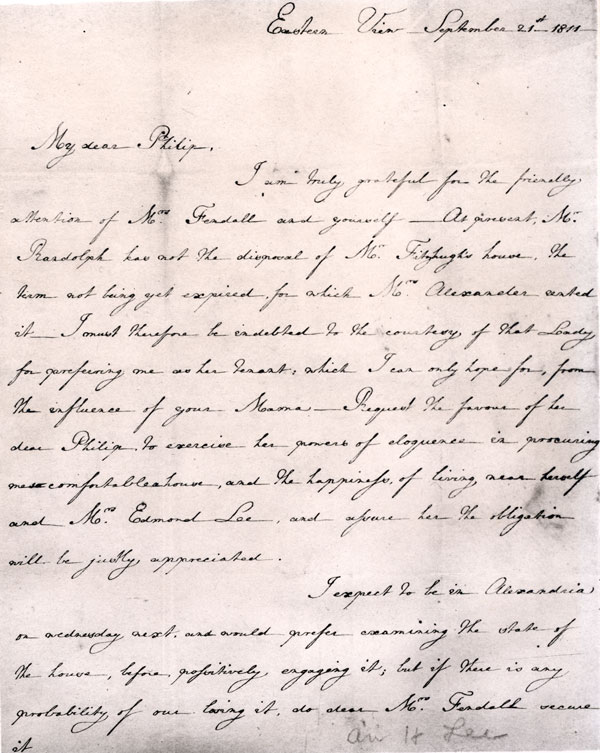 Eastern View September 21st 1811
My dear Philip,
I am truly grateful for the friendly
attention of Mrs. Fendall and yourself — At present, Mr.
Randolph has not the disposal of Mr. Fitzhugh's house, the
term not being yet expired, for which Mrs. Alexander rented
it — I must therefore be indebted to the courtesy, of that Lady
for preferring me as her tenant; which I can only hope for, from
the influence of your Mama — Request the favour of her
dear Philip, to exercise her powers of eloquence in procuring
me a comfortable house, and the happiness, of living near herself
and Mrs. Edmond Lee, and assure her the obligation
will be justly appreciated.
I expect to be in Alexandria
on wednesday next, and would prefer examining the state of
the house, before, positively engaging it; but if there is any
probability, of our losing it, do dear Mrs. Fendall secure
it
H Lee